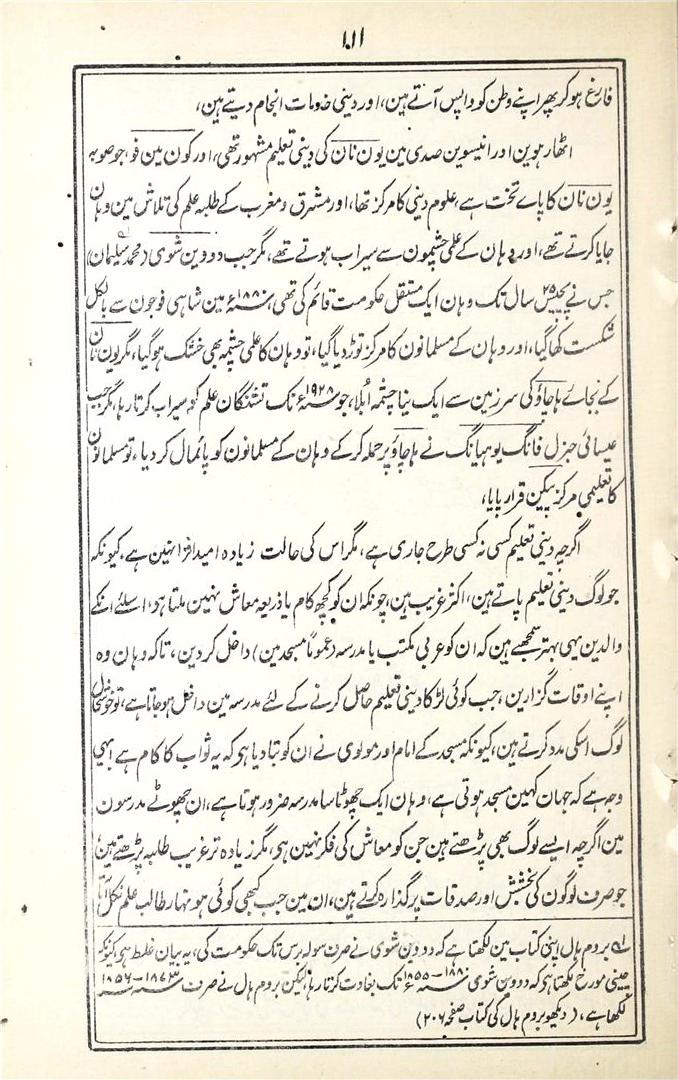 ۱۸۱
فارغ ہو کر پھر اپنے وطن کو واپس آتے ہین، اور دینی خدمات انجام دیتے ہین،
اٹھارہوین اور انیسوین صدی مین یون نان کی دینی تعلیم مشہور تھی، اور کون مین فو، جو صوبہ
یون نان کا پاے تخت ہے، علوم دینی کا مرکز تھا، اور مشرق و مغرب کے طلبہ علم کی تلاش مین وہان
جایا کرتے تھے، اور وہان کے علمی چشمون سے سیراب ہوتے تھے، مگر جب دووین شوی (محمد سلیمان)
جس نے پچیس ۲۵ سال تک وہان ایک مستقل حکومت قائم کی تھی، ۱۸۸۰ء مین شاہی فوجون سے بالکل
شکست کھا گیا، اور وہان کے مسلمانون کا مرکز توڑ دیا گیا، تو وہان کا علمی چشمہ بھی خشک ہو گیا، مگر یون نان
کے بجائے ہاچاؤ کی سرزمین سے ایک نیا چشمہ ابلا، جو ۱۹۲۸ء تک تشنگان علم کو سیراب کرتا رہا، مگر جب
عیسائی جنرل فانگ یوہیانگ نے ہاچاؤ پر حملہ کر کے وہان کے مسلمانون کو پائمال کر دیا، تو مسلمانون
کا تعلیمی مرکز پیکین قرار پایا،
اگرچہ دینی تعلیم کسی نہ کسی طرح جاری ہے، مگر اس کی حالت زیادہ امید افزا نہین ہے، کیونکہ
جو لوگ دینی تعلیم پاتے ہین، اکثر غریب ہین، چونکہ ان کو کچھ کام یا ذریعہ معاش نہین ملتا ہو، اسلئے انکے
والدین یہی بہتر سمجھے ہین کہ ان کو عربی مکتب یا مدرسہ (عموماً مسجد مین) داخل کر دین، تاکہ وہان وہ
اپنے اوقات گزارین، جب کوئی لڑکا دینی تعلیم حاصل کرنے کے لئے مدرسہ مین داخل ہو جاتا ہے، تو خوشحال
لوگ اسکی مدد کرتے ہین، کیونکہ مسجد کے امام اور مولوی نے ان کو بتا دیا ہی کہ یہ ثواب کا کام ہے یہی
وجہ ہے کہ جہان کہین مسجد ہوتی ہے، وہان ایک چھوٹا سا مدرسہ ضرور ہوتا ہے، ان چھوٹے مدرسون
مین اگرچہ ایسے لوگ بھی پڑھتے ہین جن کو معاش کی فکر نہین ہی، مگر زیادہ تر غریب طلبہ پڑھتے ہین،
جو صرف لوگون کی بخشش اور صدقات پر گذارہ کرتے ہین، ان مین جب کبھی کوئی ہونہار طالب علم نکل آتا ہے
لہ بروم ہال اپنی کتاب مین لکھتا ہے کہ دووین شوی نے صرف سولہ برس تک حکومت کی، یہ بیان غلط ہی، کیونکہ
چینی مورخ لکھتا ہی کہ دووین شوی ۱۸۵۵ء - ۱۸۸۰ تک بغاوت کرتا رہا، لیکن بروم ہال نے صرف ۱۸۵۶ - ۱۸۷۳
لکھا ہے، (دیکھو بروم ہال کی کتاب صفحہ ۲۰۶)